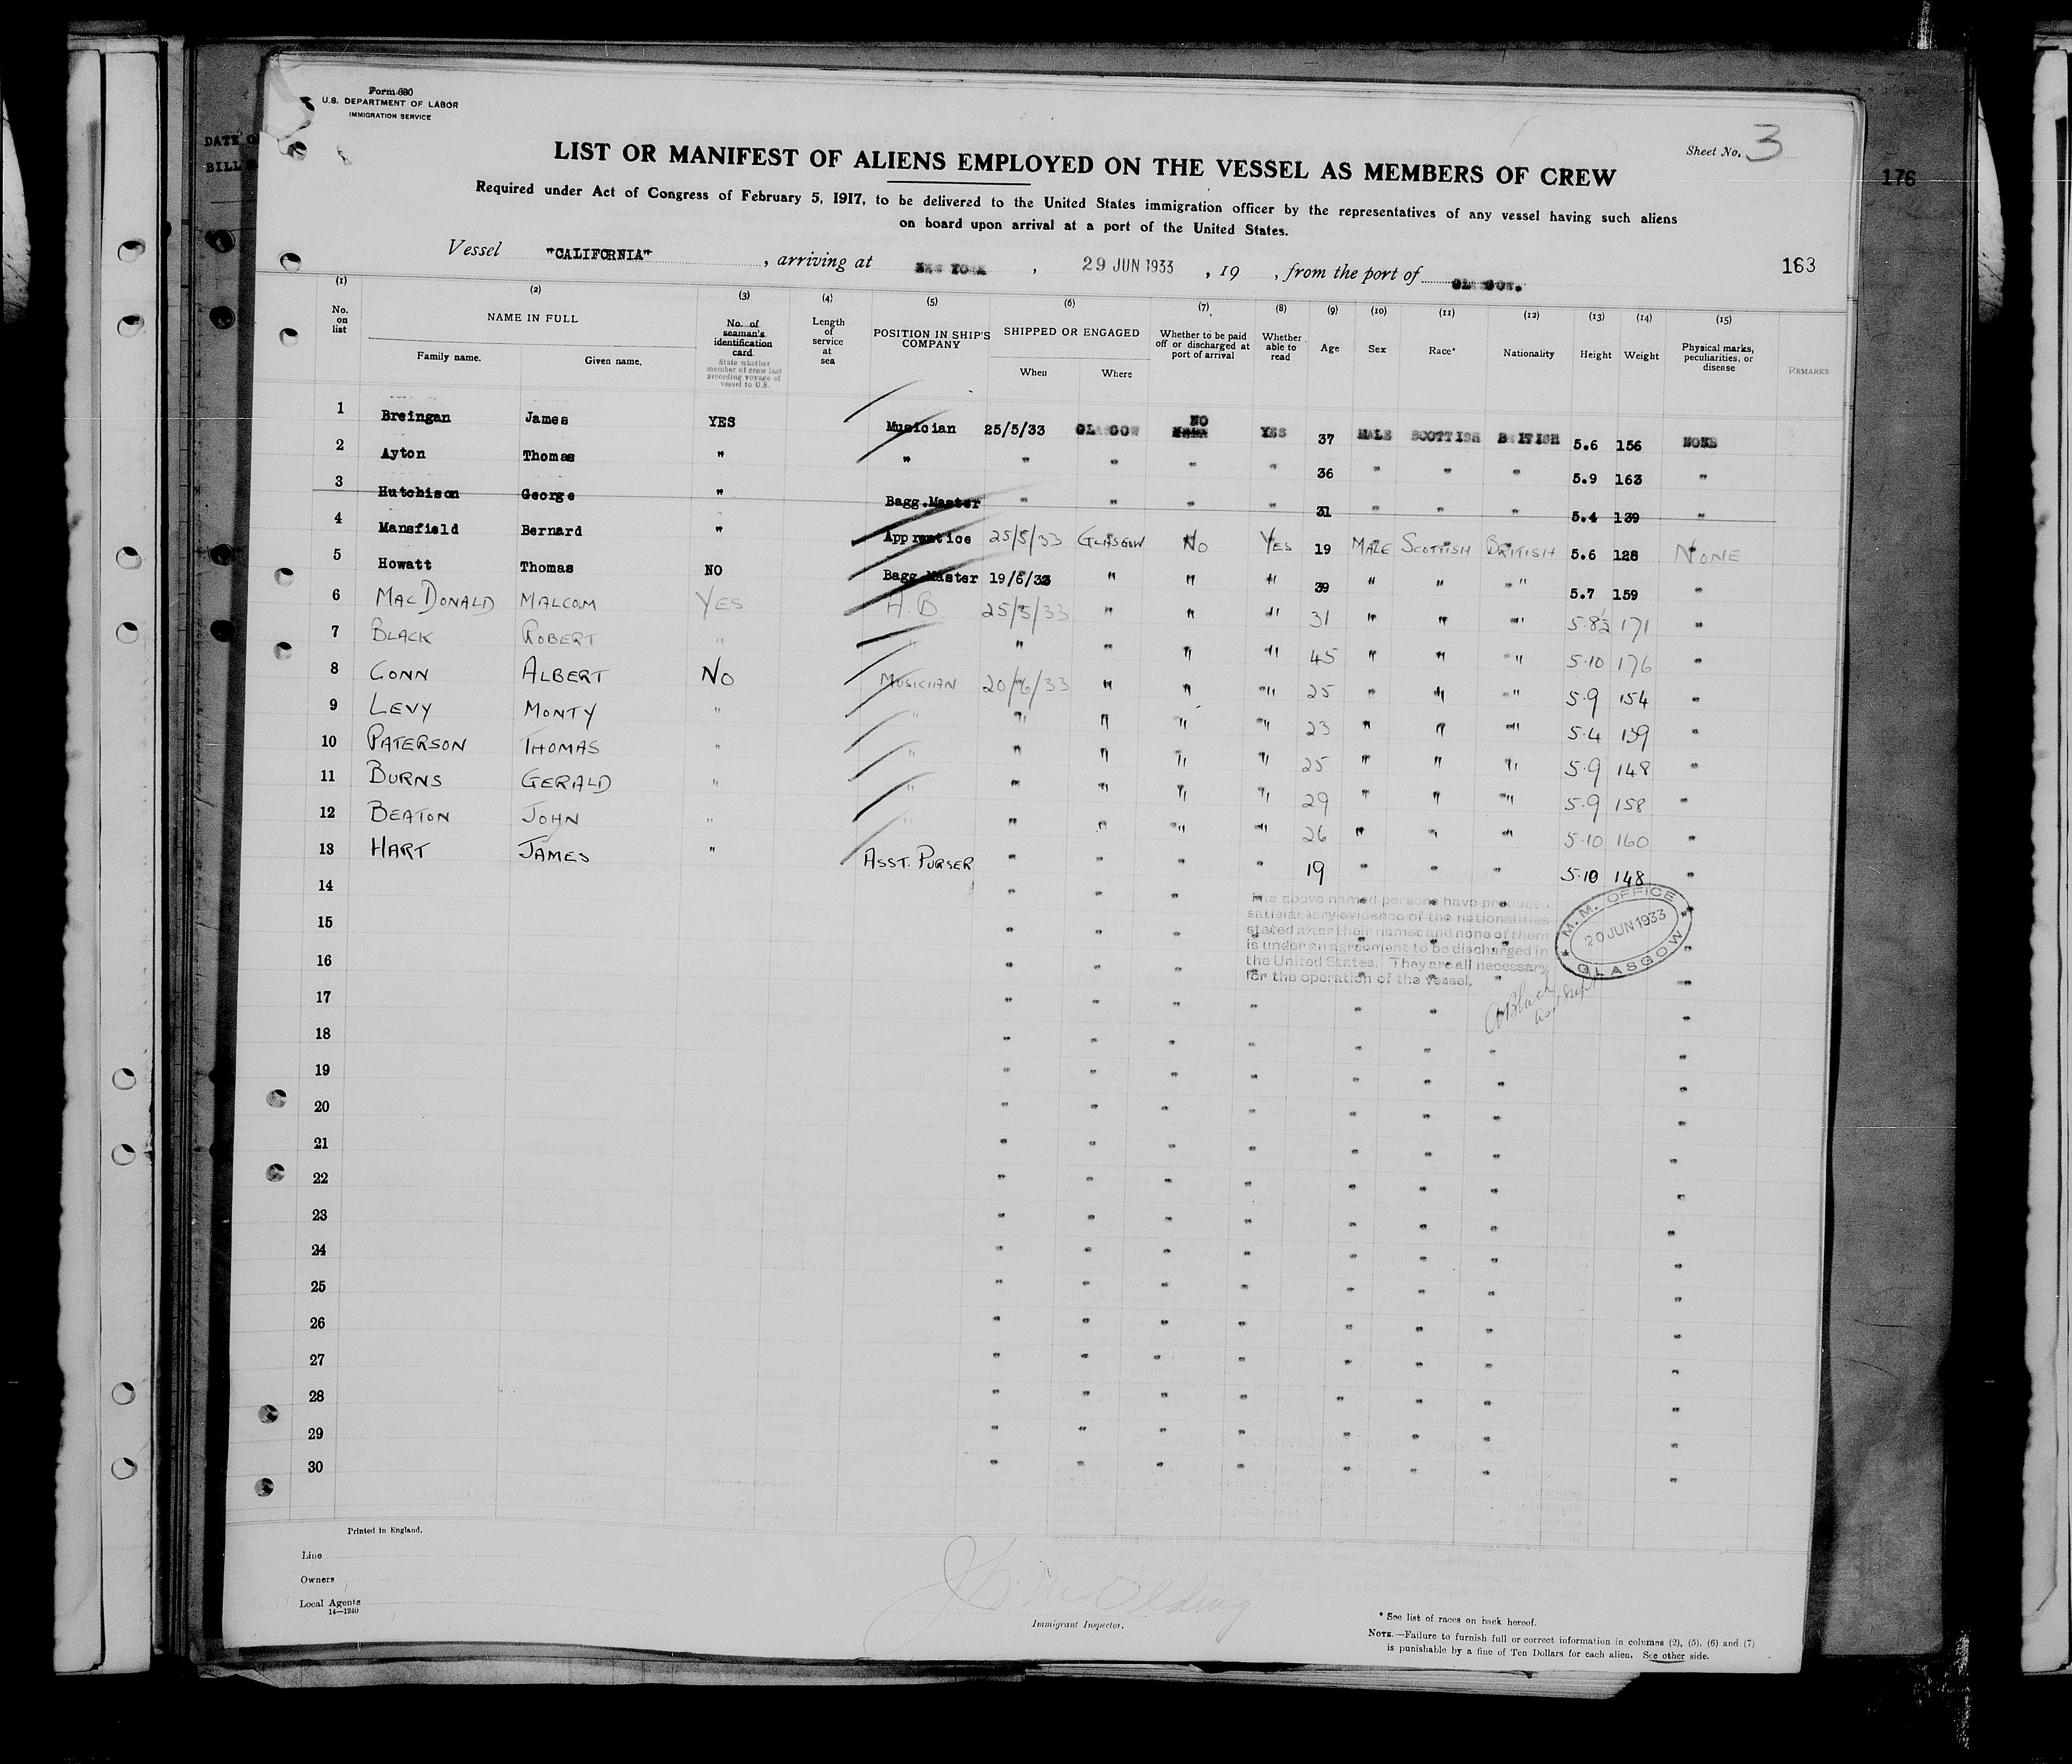 Form 680
U.S. DEPARTMENT OF LABOR
IMMIGRATION SERVICE
DATE OF
BILL
Sheet No. 3
LIST OR MANIFEST OF ALIENS EMPLOYED ON THE VESSEL AS MEMBERS OF CREW
176
Required under Act of Congress of February 5, 1917, to be delivered to the United States immigration officer by the representatives of any vessel having such aliens
on board upon arrival at a port of the United States.
Vessel "CALIFORNIA", arriving at NEW YORK, 29 JUN 1933, 19 , from the port of GLASGOW.
163
(1) (2) (3) (4) (5) (6) (7) (8) (9) (10) (11) (12) (13) (14) (15)
No. on list NAME IN FULL Family name. Given name. No. of seaman's identification card State whether member of crew last preceding voyage of vessel to U.S. Length of service at sea POSITION IN SHIP'S COMPANY SHIPPED OR ENGAGED When Where Whether to be paid off or discharged at port of arrival Whether able to read Age Sex Race* Nationality Height Weight Physical marks, peculiarities, or disease REMARKS
1 Breingan James YES Musician 25/5/33 GLASGOW NO YES 37 MALE SCOTTISH BRITISH 5.6 156 NONE
2 Ayton Thomas " " " " " " 36 " " " 5.9 163 "
3 Hutchison George " Bagg.Master " " " " 31 " " " 5.4 139 "
4 Mansfield Bernard " Apprentice 25/5/33 GLASGOW NO YES 19 MALE SCOTTISH BRITISH 5.6 128 NONE
5 Howatt Thomas NO Bagg.Master 19/6/33 " " " 39 " " " 5.7 159 "
6 MACDONALD MALCOM YES H.B 25/5/33 " " " 31 " " " 5.8½ 171 "
7 BLACK ROBERT " " " " " " 45 " " " 5.10 176 "
8 CONN ALBERT NO MUSICIAN 20/6/33 " " " 25 " " " 5.9 154 "
9 LEVY MONTY " " " " " " 23 " " " 5.4 139 "
10 PATERSON THOMAS " " " " " " 25 " " " 5.9 148 "
11 BURNS GERALD " " " " " " 29 " " " 5.9 158 "
12 BEATON JOHN " " " " " " 26 " " " 5.10 160 "
13 HART JAMES " ASST. PURSER " " " " 19 " " " 5.10 148 "
14 " " " " " " " "
15 " " " " " " " "
16 " " " " " " " "
17 " " " " " " " "
18 " " " " " " " "
19 " " " " " " " "
20 " " " " " " " "
21 " " " " " " " "
22 " " " " " " " "
23 " " " " " " " "
24 " " " " " " " "
25 " " " " " " " "
26 " " " " " " " "
27 " " " " " " " "
28 " " " " " " " "
29 " " " " " " " "
30 " " " " " " " "
The above named persons have produced
satisfactory evidence of the nationalities
stated after their names and none of them
is under an agreement to be discharged in
the United States. They are all necessary
for the operation of the vessel.
M.M. OFFICE
20 JUN 1933
GLASGOW
Black
Printed in England.
Line
Owners
Local Agents
14—1240
Immigrant Inspector.
* See list of races on back hereof.
NOTE.—Failure to furnish full or correct information in columns (2), (5), (6) and (7)
is punishable by a fine of Ten Dollars for each alien. See other side.